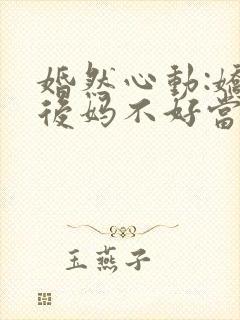 婚然心動:嬌
後妈不好當
玉燕子